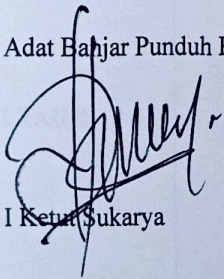 Adat Banjar Punduh
I Ketut Sukarya